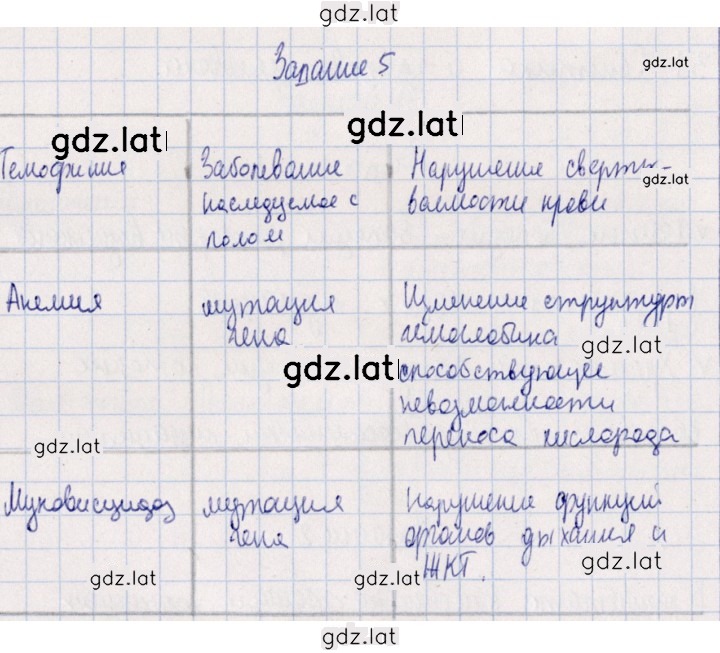 gdz.lat
Задание 5
gdz.lat
gdz.lat gdz.lat
Гемофилия Заболевание Нарушение сверты-
gdz.lat
наследуемое с ваемости крови
полом
Анемия мутация Изменение структуры
гена гемоглобина
gdz.lat
gdz.lat способствующее
невозможности
переноса кислорода
gdz.lat
Муковисцидоз мутация Нарушение функций
гена органов дыхания и
ЖКТ.
gdz.lat gdz.lat gdz.lat
gdz.lat